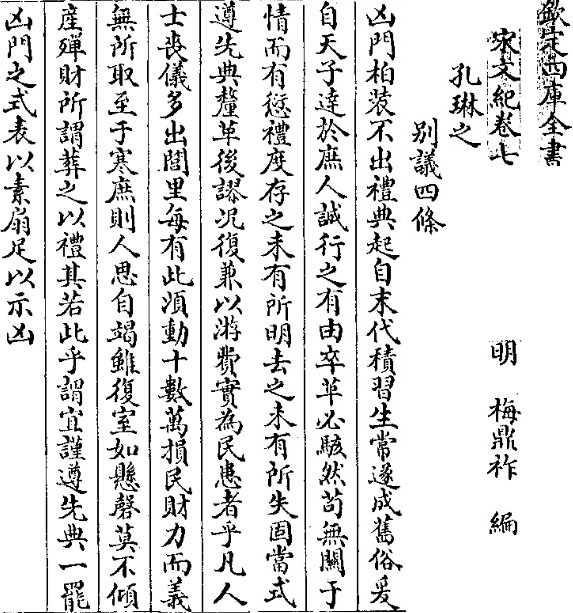 欽定四庫全書
宋文紀卷七
明 梅鼎祚 編
孔琳之
別議四條
凶門柏装不出禮典起自末代積習生常遂成舊俗爰
自天子達於庶人誠行之有由卒革必駭然苟無關于
情而有愆禮度存之未有所明去之未有所失固當式
遵先典釐革後謬况復兼以游費實為民患者乎凡人
士喪儀多出閭里每有此須動十數萬損民財力而義
無所取至于寒庶則人思自竭雖復室如懸磬莫不傾
産殫財所謂葬之以禮其若此乎謂宜謹遵先典一罷
凶門之式表以素扇足以示凶